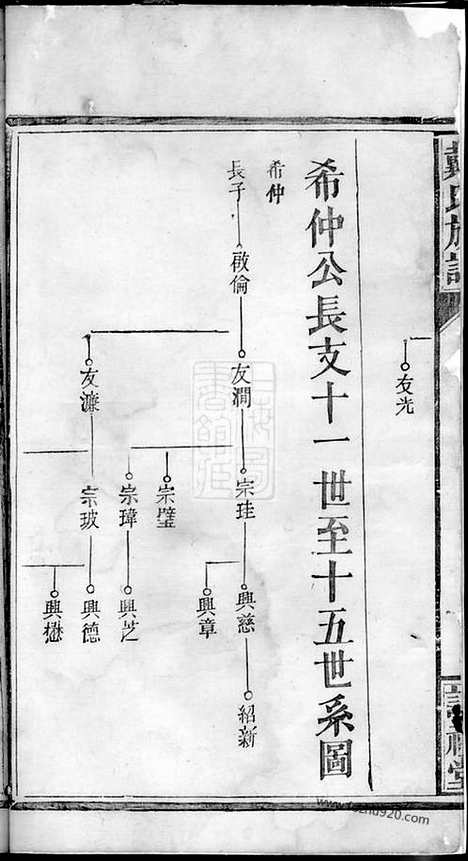 戴氏族譜
友光
希仲公長支十一世至十五世系圖
希仲
長子
啟倫
友澗
友濂
宗珪
宗璧
宗瑋
宗玻
興慈
興章
興芝
興德
興懋
紹新
www.fozhu920.com